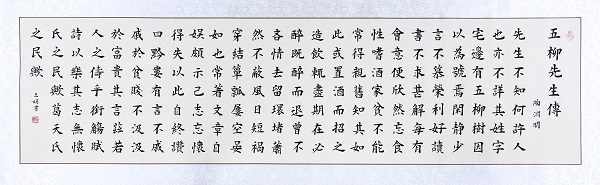 五柳先生傳
陶淵明
先生不知何許人
也亦不詳其姓字
宅邊有五柳樹因
以為號焉閑靜少
言不慕榮利好讀
書不求甚解每有
會意便欣然忘食
性嗜酒家貧不能
常得親舊知其如
此或置酒而招之
造飲輒盡期在必
醉既醉而退曾不
吝情去留環堵蕭
然不蔽風日短褐
穿結簞瓢屢空晏
如也常著文章自
娛頗示己志忘懷
得失以此自終贊
曰黔婁有言不戚
戚於貧賤不汲汲
於富貴其言茲若
人之儔乎銜觴賦
詩以樂其志無懷
氏之民歟葛天氏
之民歟